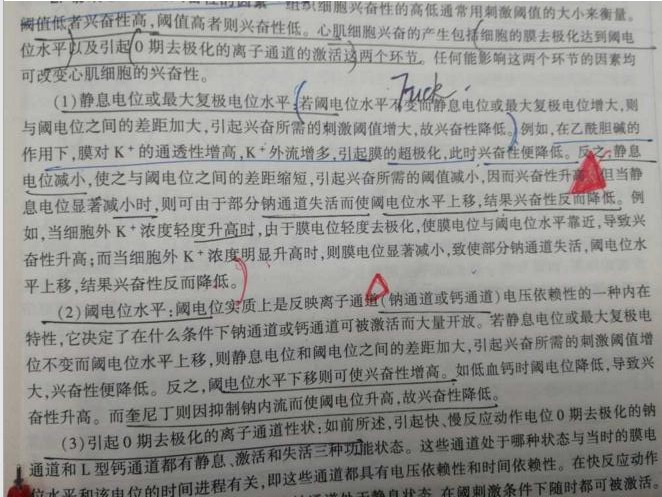 组织细胞兴奋性的高低通常用刺激阈值的大小来衡量。
阈值低者兴奋性高，阈值高者则兴奋性低。心肌细胞兴奋的产生包括细胞的膜去极化达到阈电
位水平以及引起0期去极化的离子通道的激活这两个环节。任何能影响这两个环节的因素均
可改变心肌细胞的兴奋性。
Fuck
(1)静息电位或最大复极电位水平：若阈电位水平不变而静息电位或最大复极电位增大，则
与阈电位之间的差距加大，引起兴奋所需的刺激阈值增大，故兴奋性降低。例如，在乙酰胆碱的
作用下，膜对K⁺的通透性增高，K⁺外流增多，引起膜的超极化，此时兴奋性便降低。反之，静息
电位减小，使之与阈电位之间的差距缩短，引起兴奋所需的阈值减小，因而兴奋性升高 但当静
息电位显著减小时，则可由于部分钠通道失活而使阈电位水平上移，结果兴奋性反而降低。例
如，当细胞外K⁺浓度轻度升高时，由于膜电位轻度去极化，使膜电位与阈电位水平靠近，导致兴
奋性升高；而当细胞外K⁺浓度明显升高时，则膜电位显著减小，致使部分钠通道失活，阈电位水
平上移，结果兴奋性反而降低。
(2)阈电位水平：阈电位实质上是反映离子通道(钠通道或钙通道)电压依赖性的一种内在
特性，它决定了在什么条件下钠通道或钙通道可被激活而大量开放。若静息电位或最大复极电
位不变而阈电位水平上移，则静息电位和阈电位之间的差距加大，引起兴奋所需的刺激阈值增
大，兴奋性便降低。反之，阈电位水平下移则可使兴奋性增高。如低血钙时阈电位降低，导致兴
奋性升高。而奎尼丁则因抑制钠内流而使阈电位升高，故兴奋性降低。
(3)引起0期去极化的离子通道性状：如前所述，引起快、慢反应动作电位0期去极化的钠
通道和L型钙通道都有静息、激活和失活三种功能状态。这些通道处于哪种状态与当时的膜电
位水平和该电位的时间进程有关，即这些通道都具有电压依赖性和时间依赖性。在快反应动作
通道处于静息状态，在阈刺激条件下随时都可被激活。